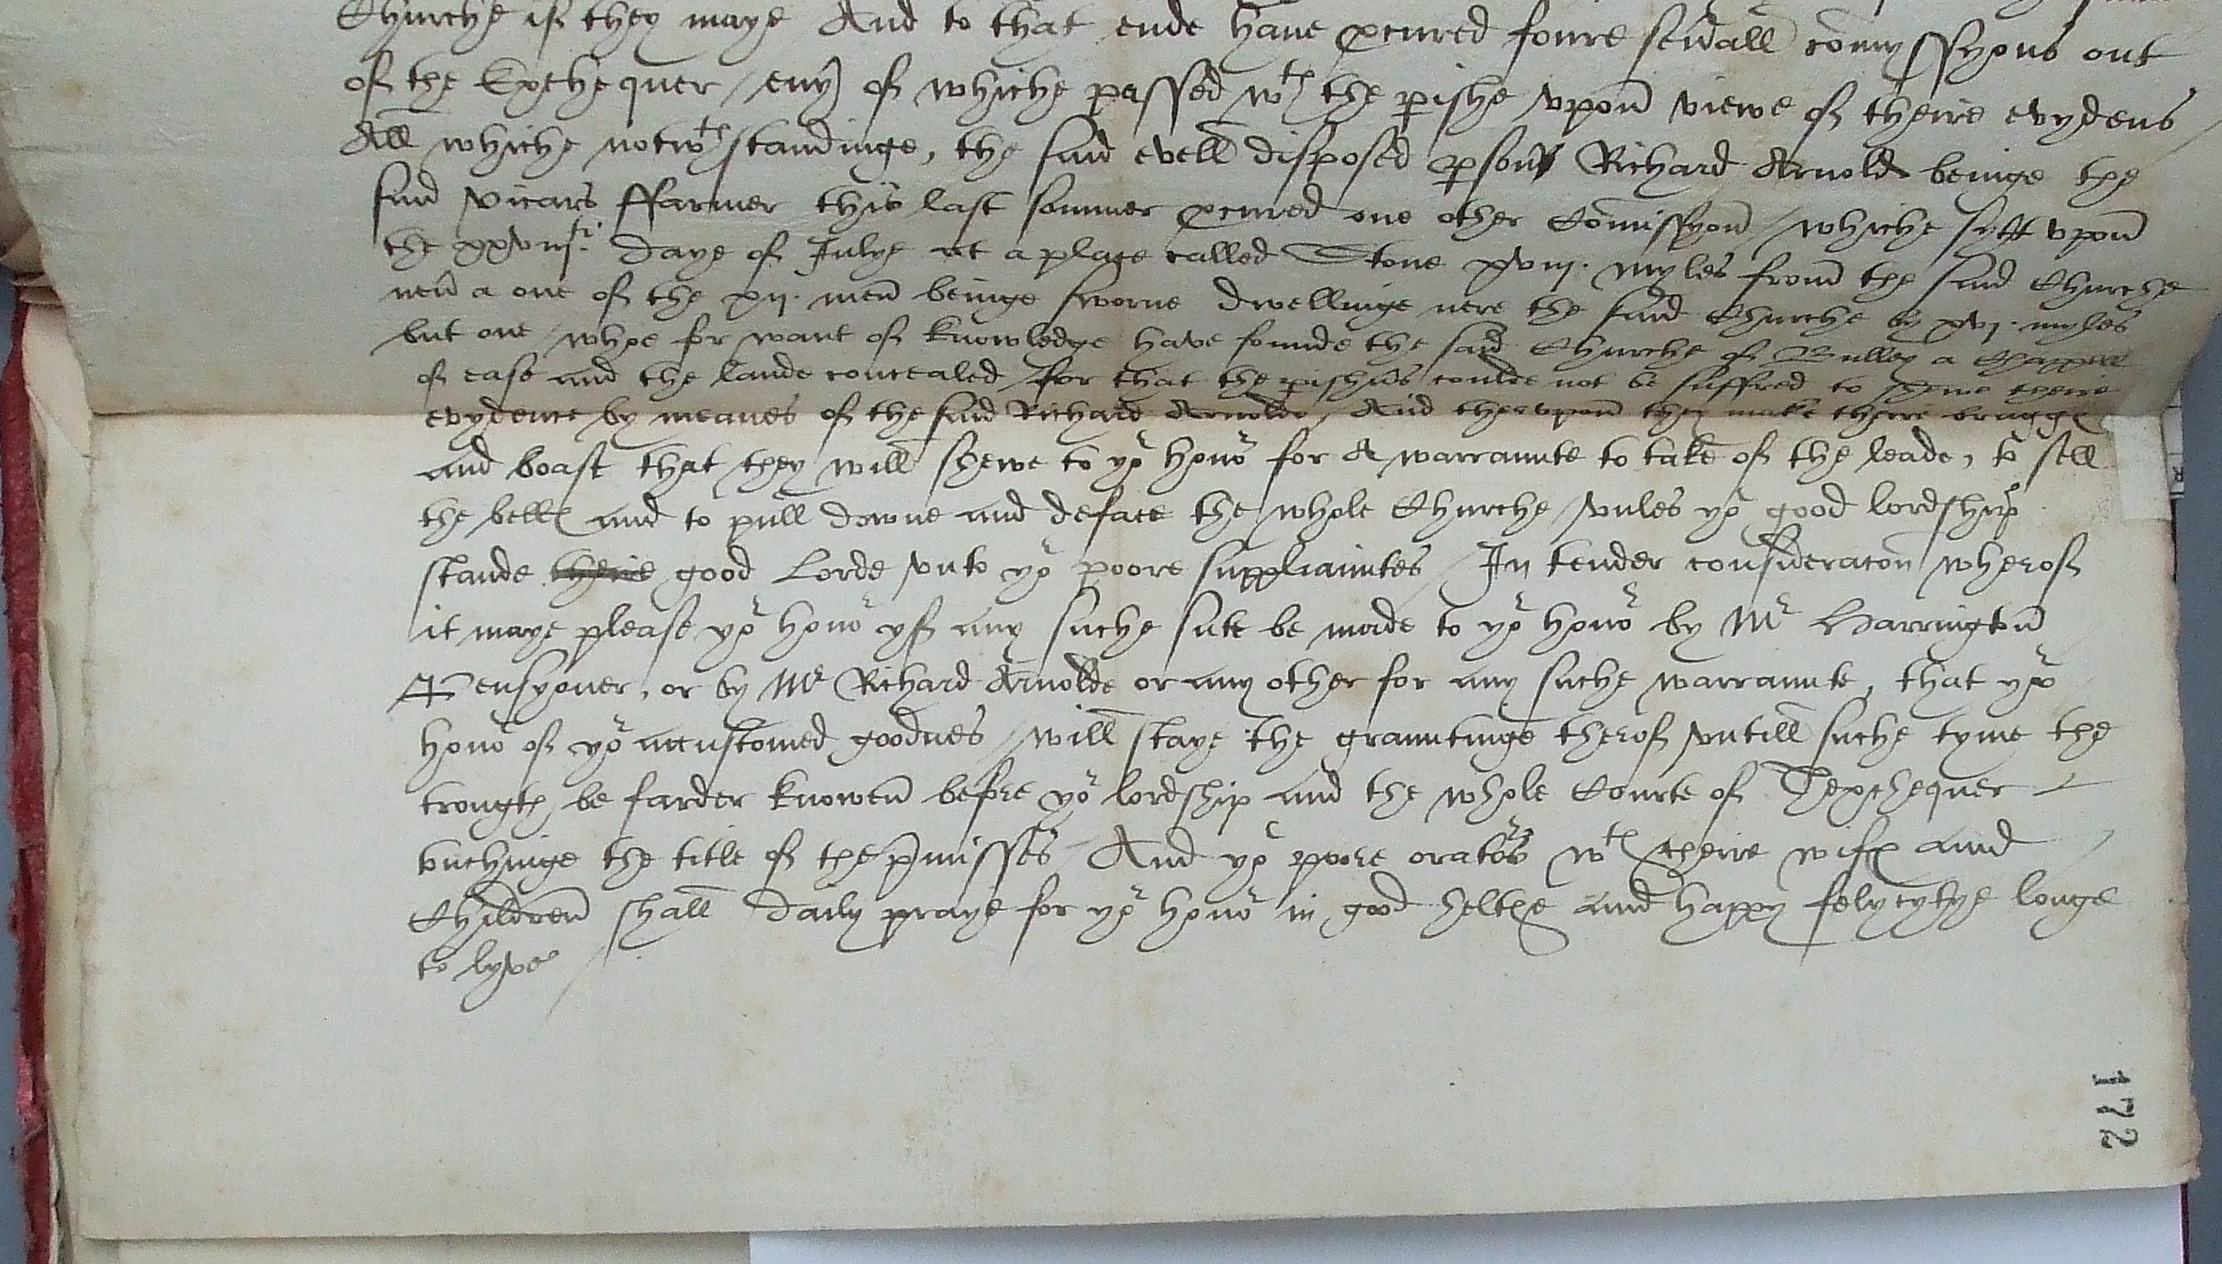 Churche if they maye And to that ende haue pcured foure seuall comyssyons out
of the Exchequer / eny of whiche passed wth the pishe vpon viewe of theire evydens
All whiche notwthstandinge, the said evell disposed psons Richard Arnold beinge the
said vicars ffarmer this last sommer pcured one other Comissyon / whiche sytt vpon
the daye of Julye at a place called Stone xviij. myles from the said Churche
neu a one of the xij. men beinge sworne dwellinge nere the said Churche by xvj. myles
but one / whoe for want of knowledge have founde the said Churche of Bulley a Chappell
of ease and the lande concealed / for that the pishns coulde not be suffred to shewe theire
evydence by meanes of the said Richard Arnolde / And thervpon they make theire bragge
and boast that they will shewe to yor honor for A warraunte to take of the leade, to sell
the belles and to pull downe and deface the whole Churche / vnles yor good lordship
stande theire good Lorde vnto yor poore suppliauntes / In tender consideracon wherof
it maye please yor honor yf any suche sute be made to yor honor by Mr Harrington
Pensyoner, or by Mr Richard Arnolde or any other for any suche warraunte, that yor
honor of yor accustomed goodnes / will staye the grauntinge therof vntill suche tyme the
trougth be farder knowen before yor lordship and the whole Courte of Thexchequer
tuchinge the title of the pmisses / And yor poore orators wth theire wifes and
Children shall daily praye for yor honor in good helthe and happy felycytye longe
to lyve
172